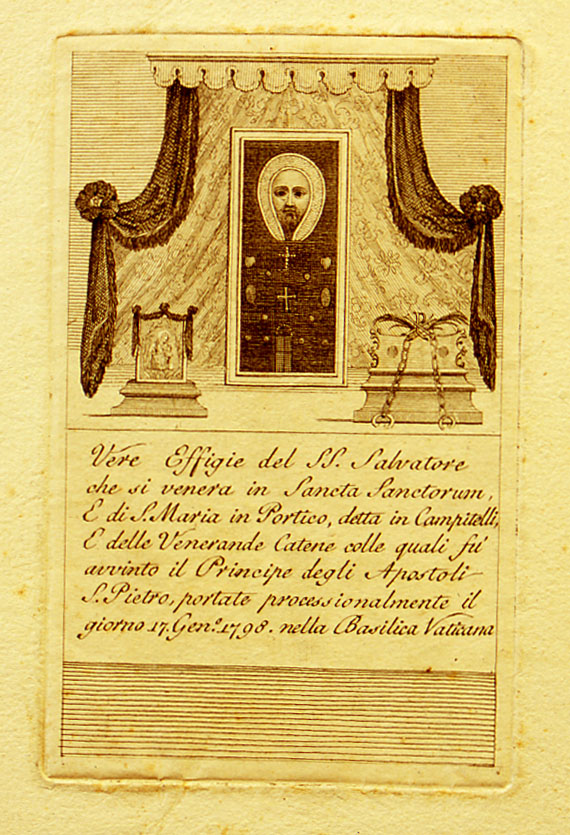 Vere Effigie del SS. Salvatore
che si venera in Sancta Sanctorum,
E di S. Maria in Portico, detta in Campitelli,
E delle Venerande Catene colle quali fú
avvinto il Principe degli Apostoli
S. Pietro, portate processionalmente il
giorno 17. Gen.º 1798. nella Basilica Vaticana